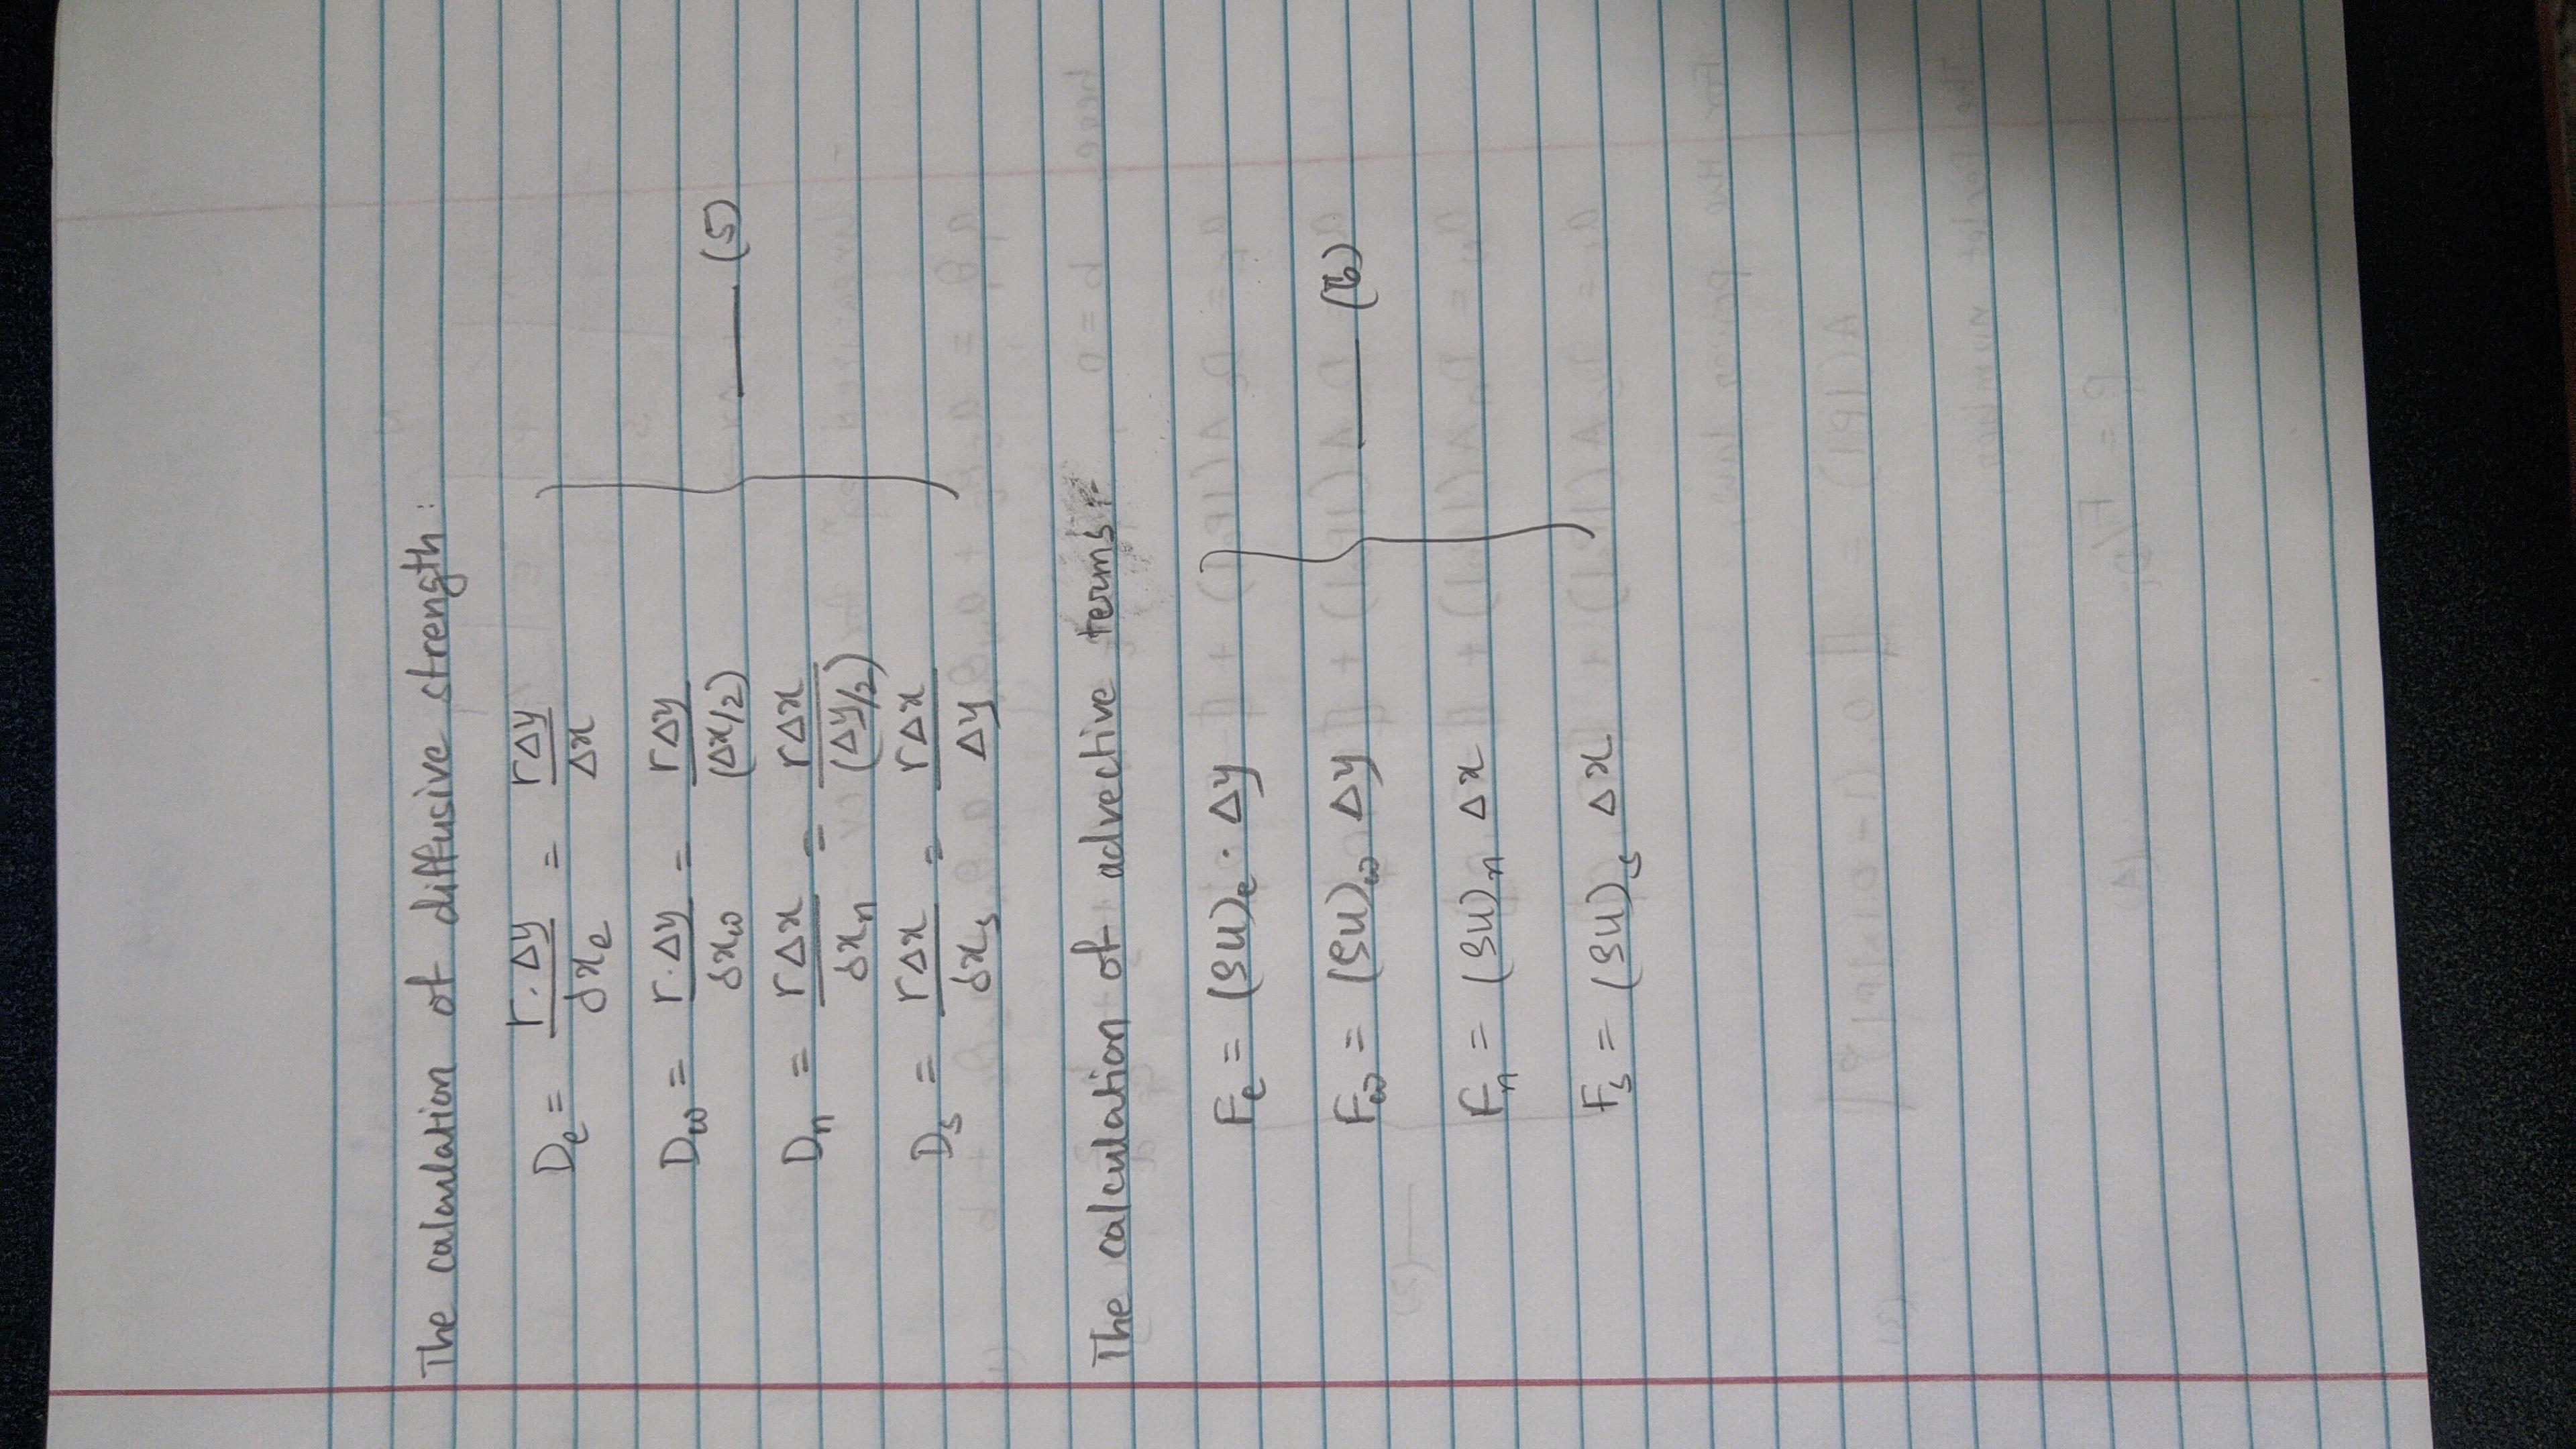 The calculation of diffusive strength:
De = Γ.Δy/δxe = ΓΔy/Δx
Dw = Γ.Δy/δxw = ΓΔy/(Δx/2)
Dn = ΓΔx/δxn = ΓΔx/(Δy/2)
Ds = ΓΔx/δxs = ΓΔx/Δy
—— (5)
The calculation of advective terms:-
Fe = (ρu)e · Δy
Fw = (ρu)w Δy
Fn = (ρu)n Δx
Fs = (ρu)s Δx
—— (6)